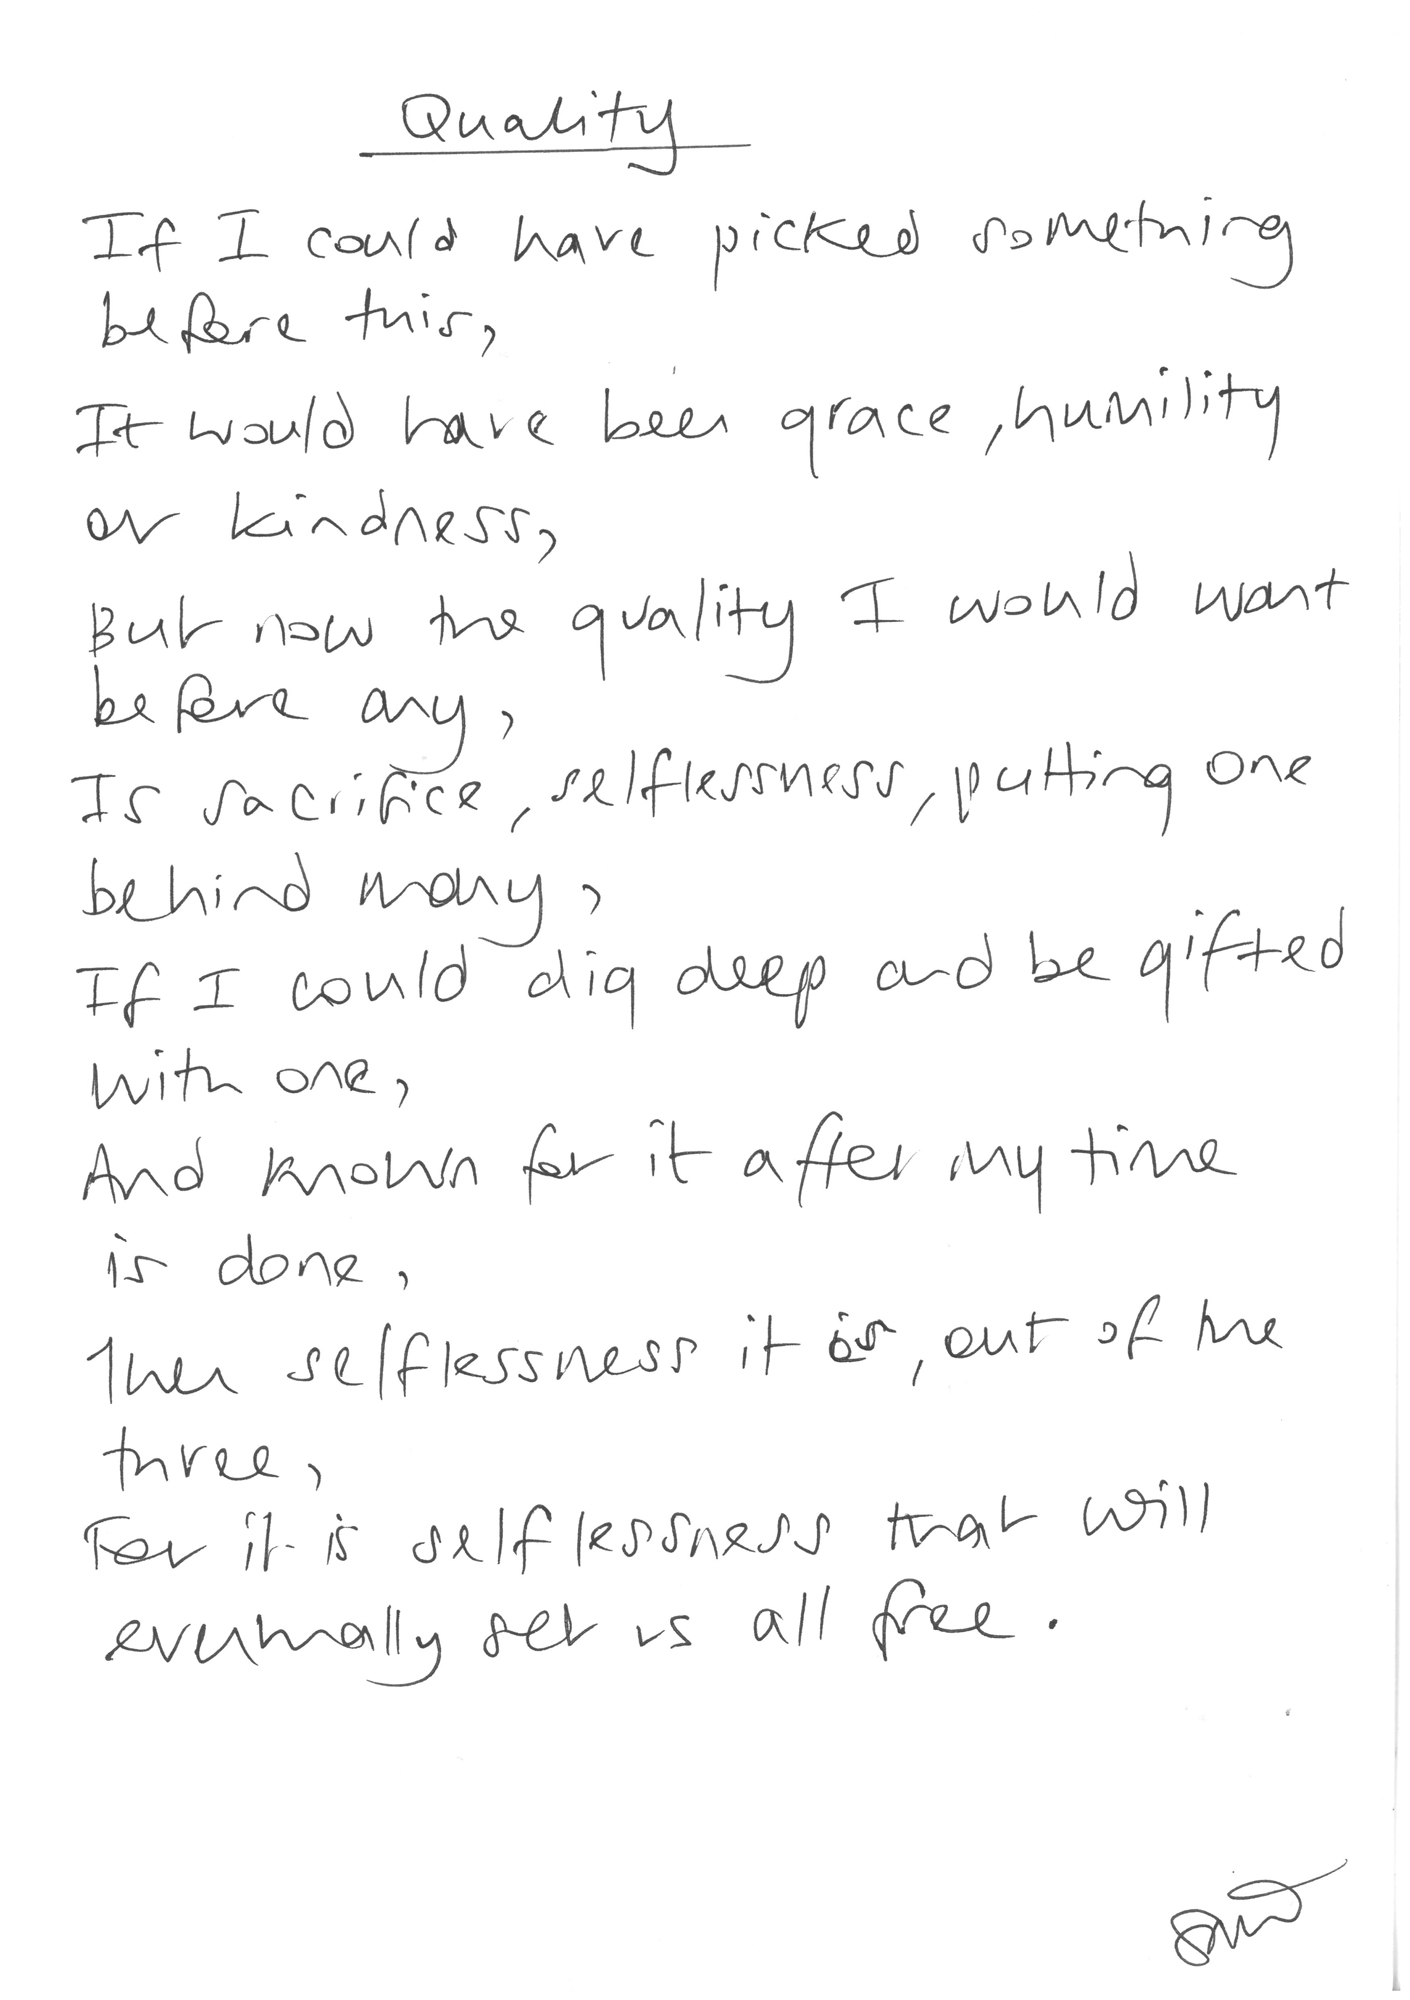 Quality
If I could have picked something
before this,
It would have been grace, humility
or kindness,
But now the quality I would want
before any,
Is sacrifice, selflessness, putting one
behind many,
If I could dig deep and be gifted
with one,
And known for it after my time
is done,
Then selflessness it is, out of the
three,
For it is selflessness that will
eventually set us all free.